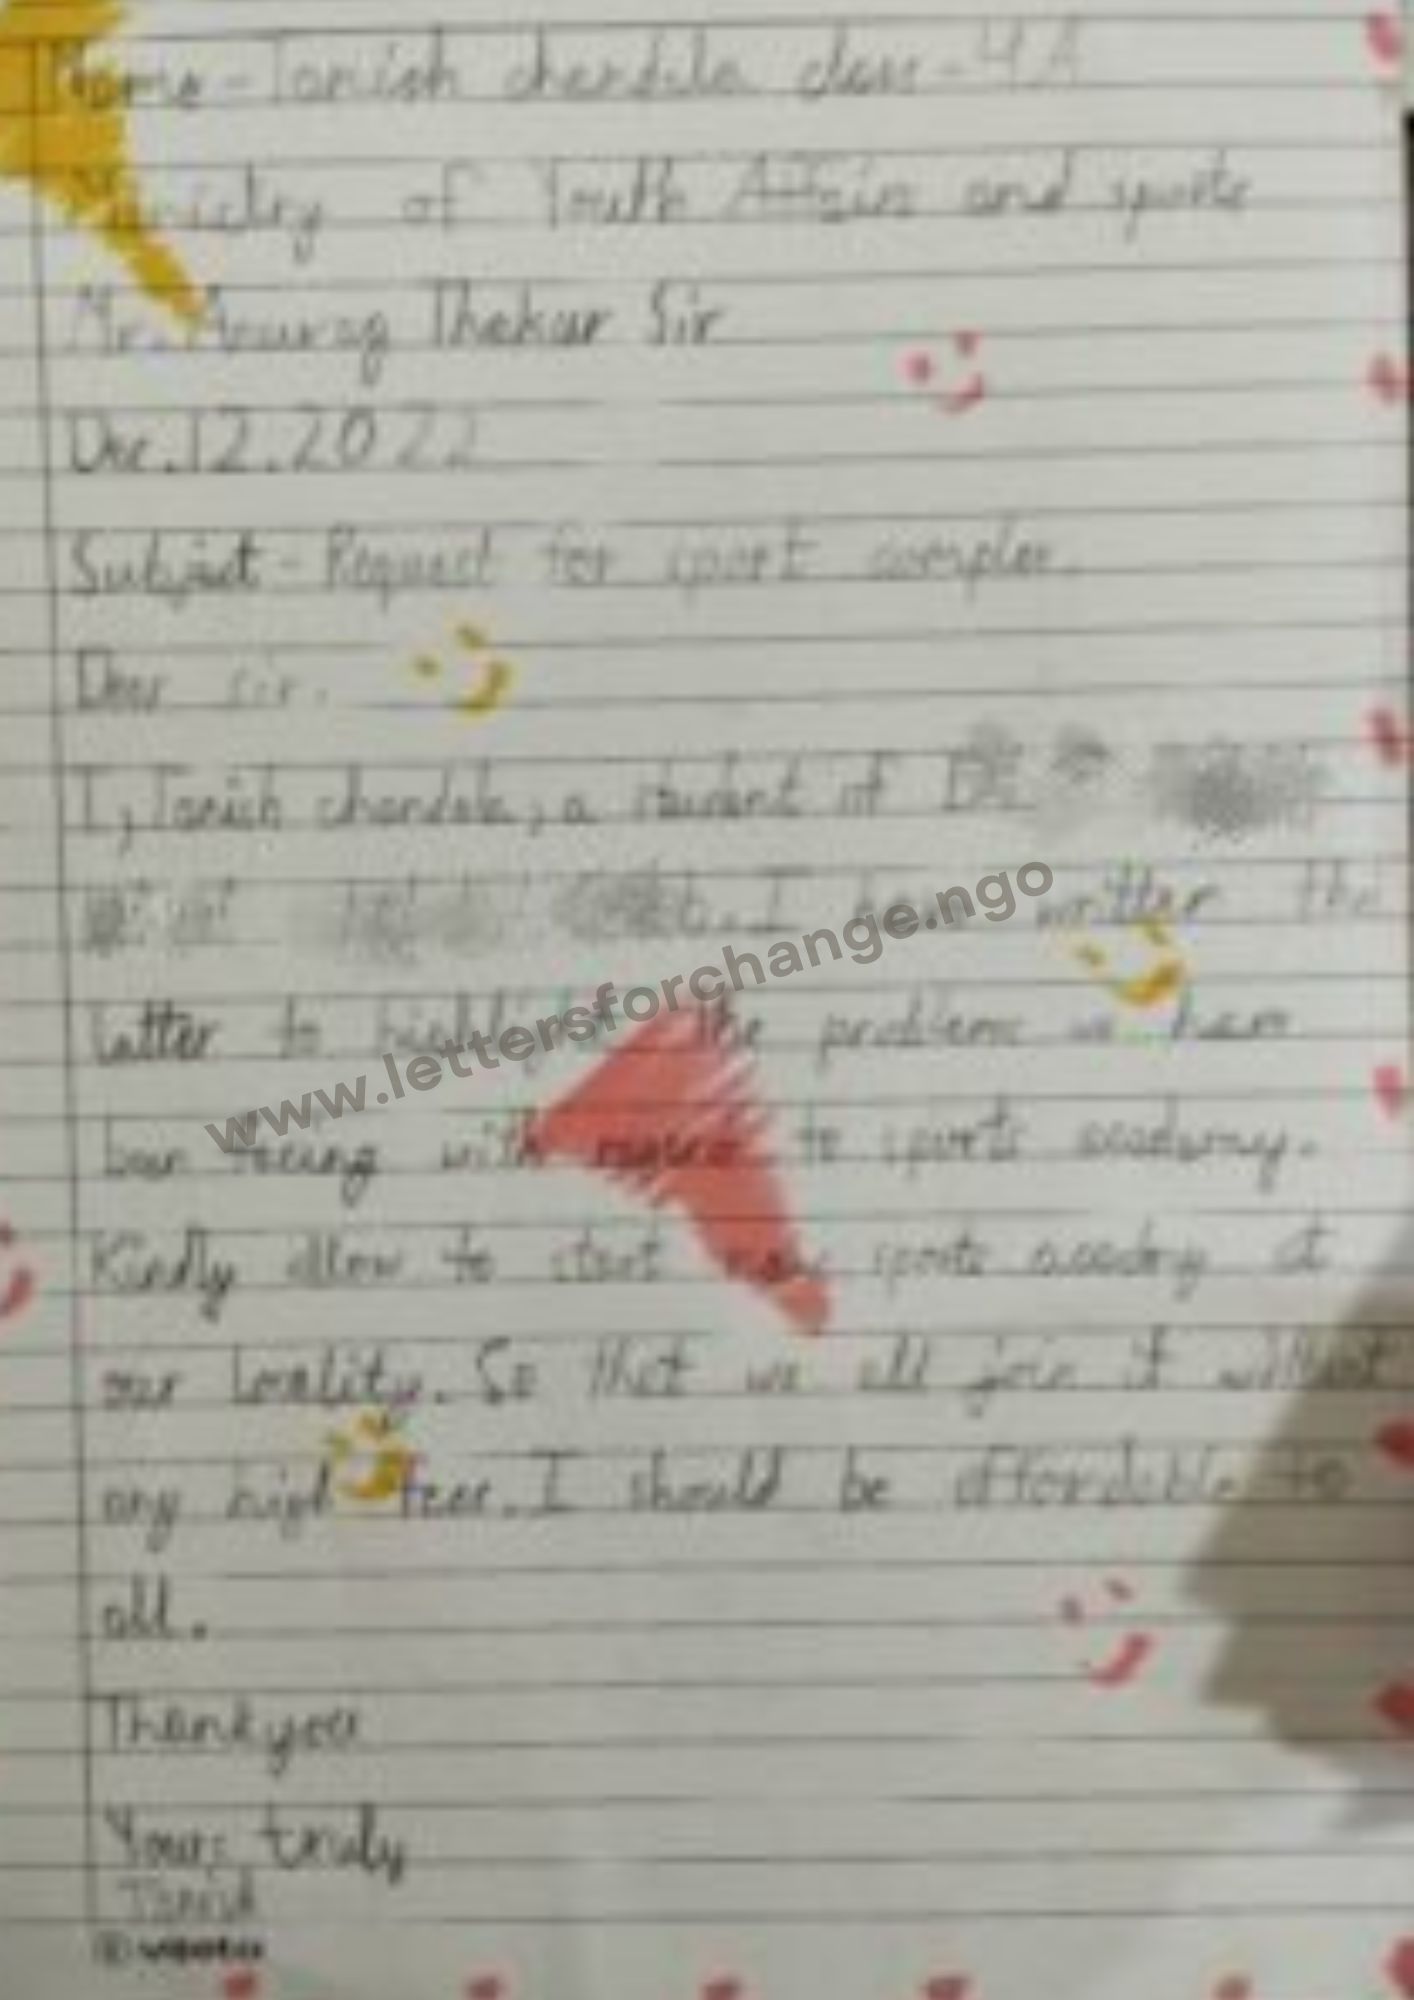 Name - Tanish chandila class - 4 A
Ministry of Youth Affairs and sports
Mr. Anurag Thakur Sir
Dec. 12. 2022
Subject - Request for sport complex.
Dear sir.
I, Tanish chandila, a student of
I have written the
latter to highlight the problems we have
been facing with regard to sports academy.
Kindly allow to start sports acadmy at
our locality. So that we all join it without
any high fees. I should be affordable to
all.
Thankyou
Yours truly
Tanish
www.lettersforchange.ngo